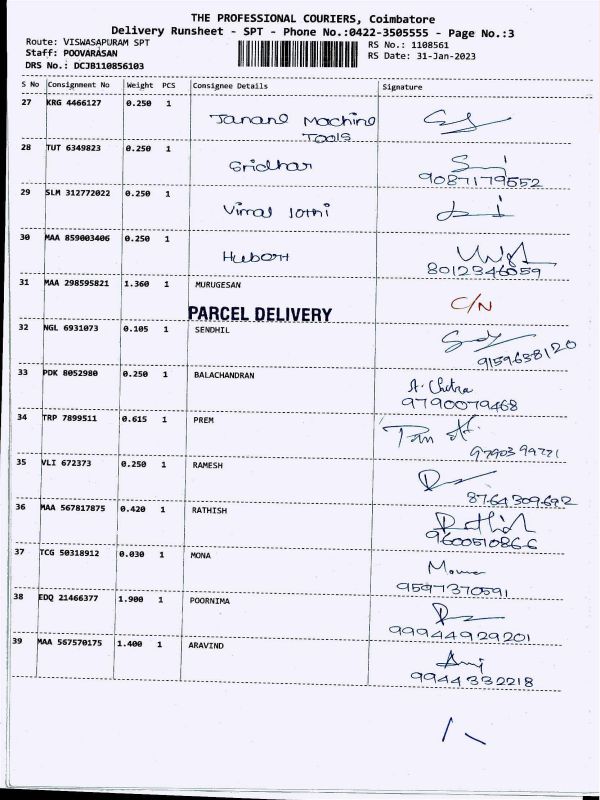 THE PROFESSIONAL COURIERS, Coimbatore
Delivery Runsheet - SPT - Phone No.:0422-3505555 - Page No.:3
Route: VISWASAPURAM SPT
RS No.: 1108561
Staff: POOVARASAN
RS Date: 31-Jan-2023
DRS No.: DCJB110856103
S No Consignment No Weight PCS Consignee Details Signature
27 KRG 4466127 0.250 1 Janani Machine
Tools
28 TUT 6349823 0.250 1 Sridhar
9087179552
29 SLM 312772022 0.250 1 Vimal Jothi
30 MAA 859003406 0.250 1 Hubert
8012346059
31 MAA 298595821 1.360 1 MURUGESAN C/N
PARCEL DELIVERY
32 NGL 6931073 0.105 1 SENDHIL
9159638120
33 PDK 8052980 0.250 1 BALACHANDRAN A. Chitra
9790079468
34 TRP 7899511 0.615 1 PREM
35 VLI 672373 0.250 1 RAMESH
8764309692
36 MAA 567817875 0.420 1 RATHISH Rathish
9600510866
37 TCG 50318912 0.030 1 MONA Mona
9597370591
38 EDQ 21466377 1.900 1 POORNIMA
99944929201
39 MAA 567570175 1.400 1 ARAVIND
9944332218